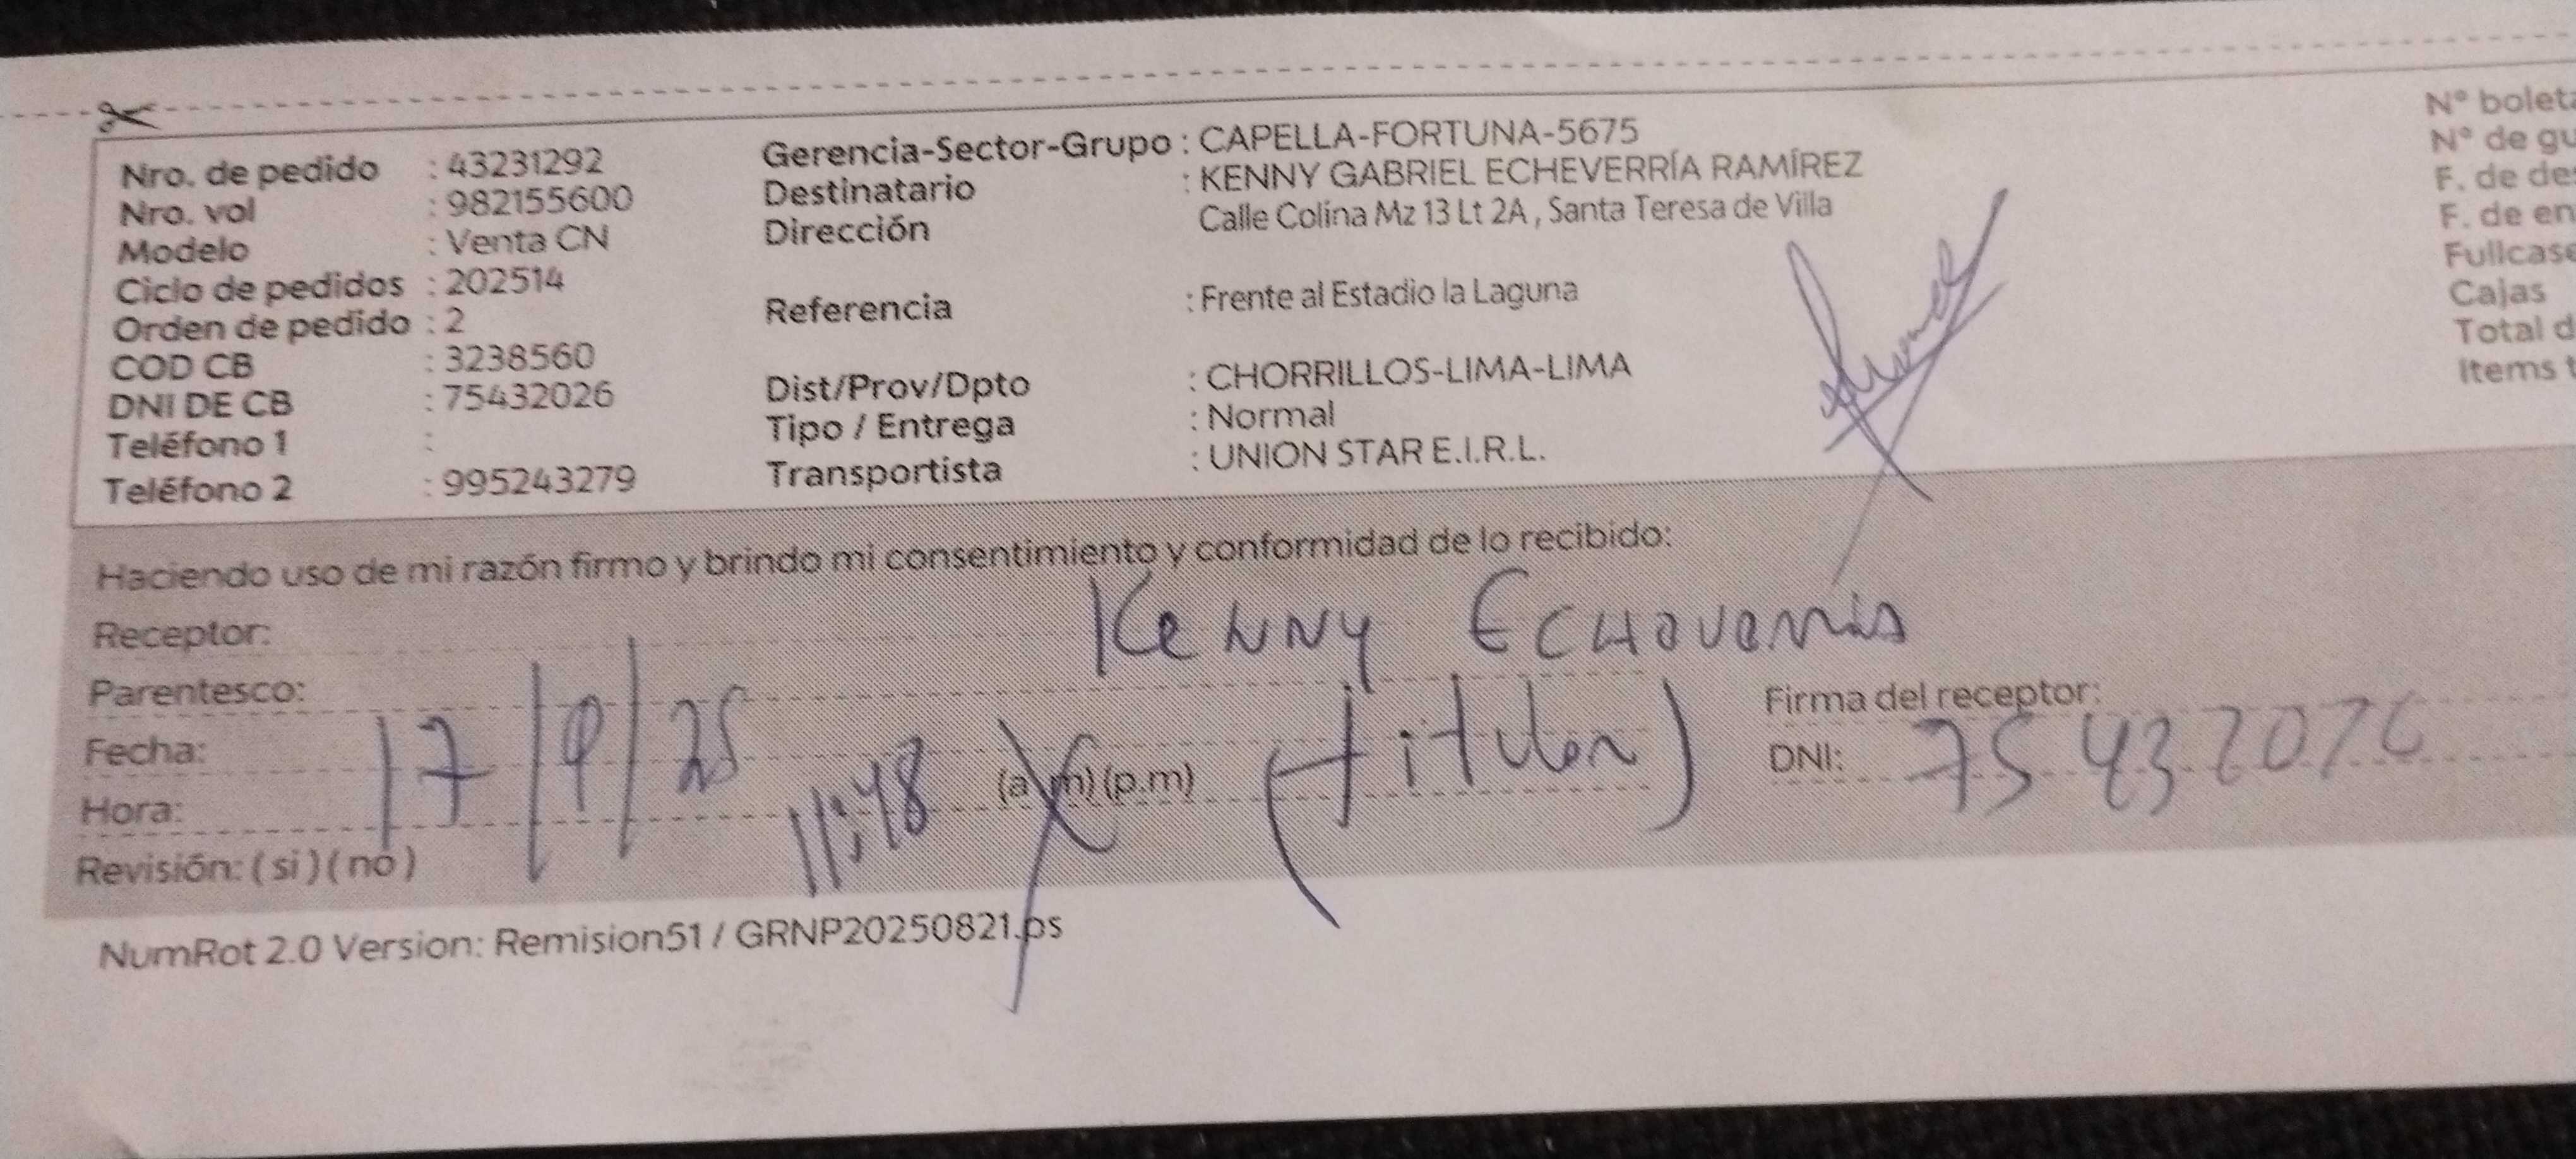 Nro. de pedido : 43231292
Nro. vol : 982155600
Modelo : Venta CN
Ciclo de pedidos : 202514
Orden de pedido : 2
COD CB : 3238560
DNI DE CB : 75432026
Teléfono 1 :
Teléfono 2 : 995243279
Gerencia-Sector-Grupo : CAPELLA-FORTUNA-5675
Destinatario : KENNY GABRIEL ECHEVERRÍA RAMÍREZ
Dirección Calle Colina Mz 13 Lt 2A , Santa Teresa de Villa
Referencia : Frente al Estadio la Laguna
Dist/Prov/Dpto : CHORRILLOS-LIMA-LIMA
Tipo / Entrega : Normal
Transportista : UNION STAR E.I.R.L.
N° boleta
N° de gu
F. de des
F. de en
Fullcase
Cajas
Total d
Items t
Haciendo uso de mi razón firmo y brindo mi consentimiento y conformidad de lo recibido:
Receptor: Kenny Echeverria
Parentesco: (titular)
Fecha: 17/9/25
Hora: 11:48 (a.m) (p.m)
Revisión: ( si ) ( no )
Firma del receptor:
DNI: 75432026
NumRot 2.0 Version: Remision51 / GRNP20250821.ps